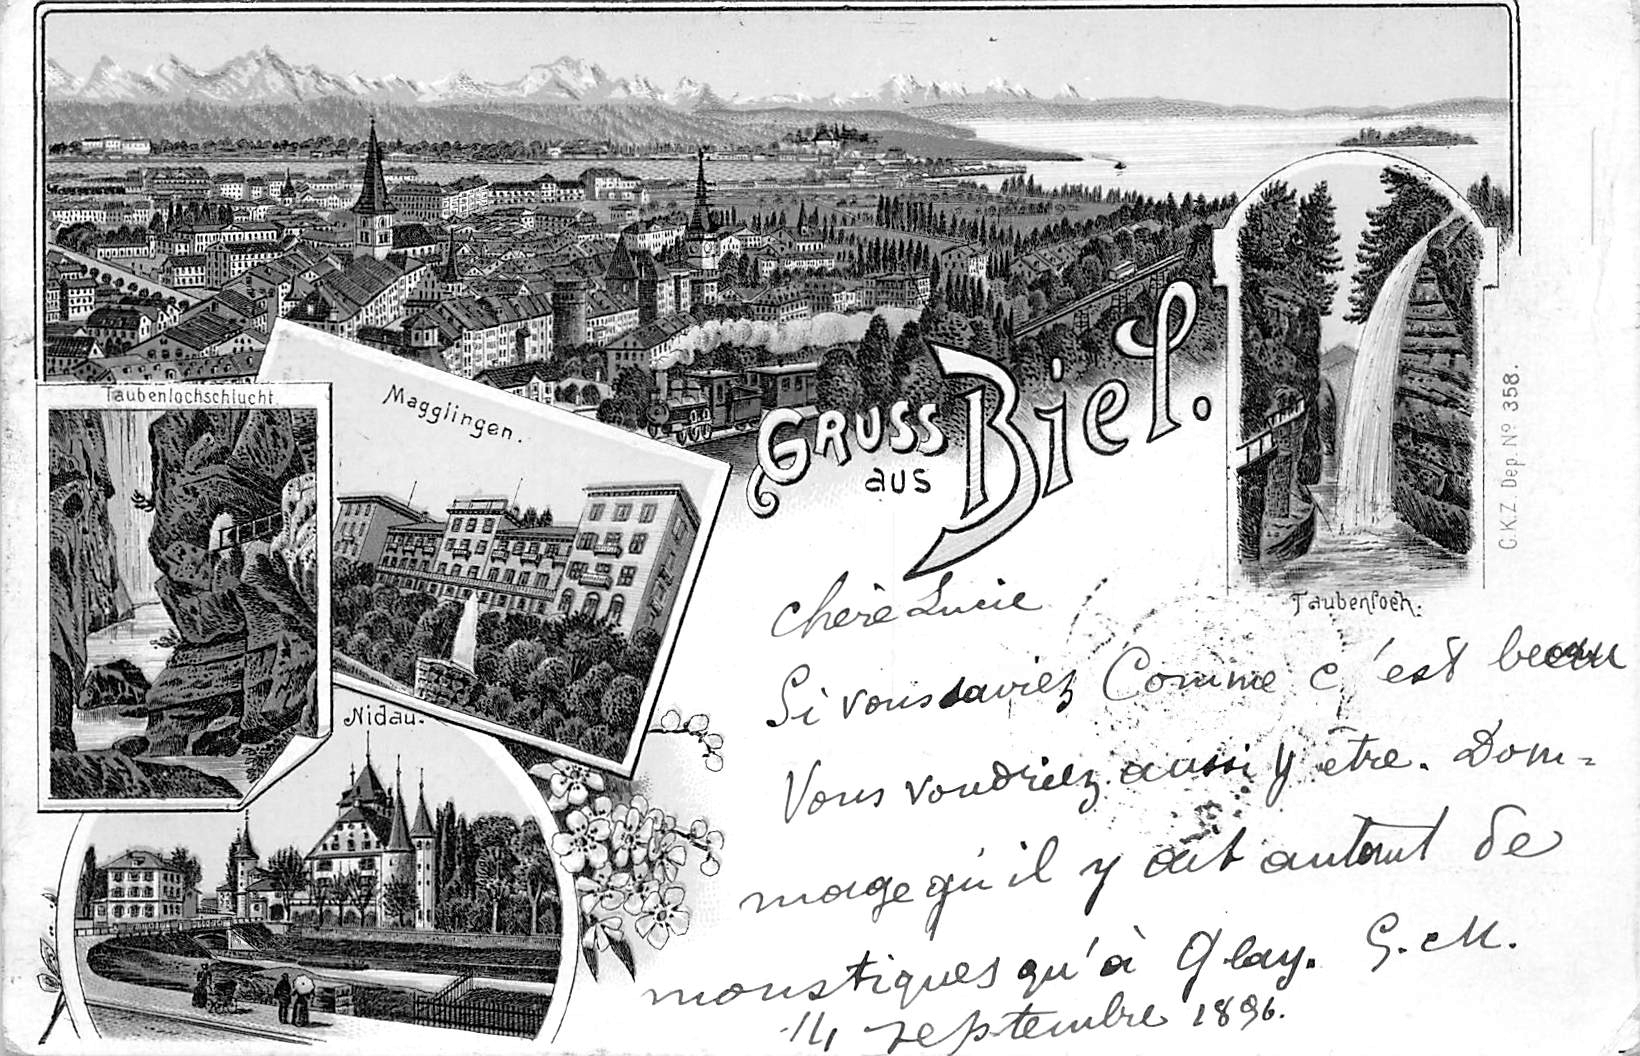 Taubenlochschlucht.
Magglingen.
GRUSS
aus
Biel.
C.K.Z. Dep. Nº 358.
Taubenloch.
Nidau.
chère Lucie
Si vous saviez Comme c'est beau
Vous voudriez aussi y être. Dom=
mage qu'il y ait autant de
moustiques qu'à Glay. G. M.
14 septembre 1896.